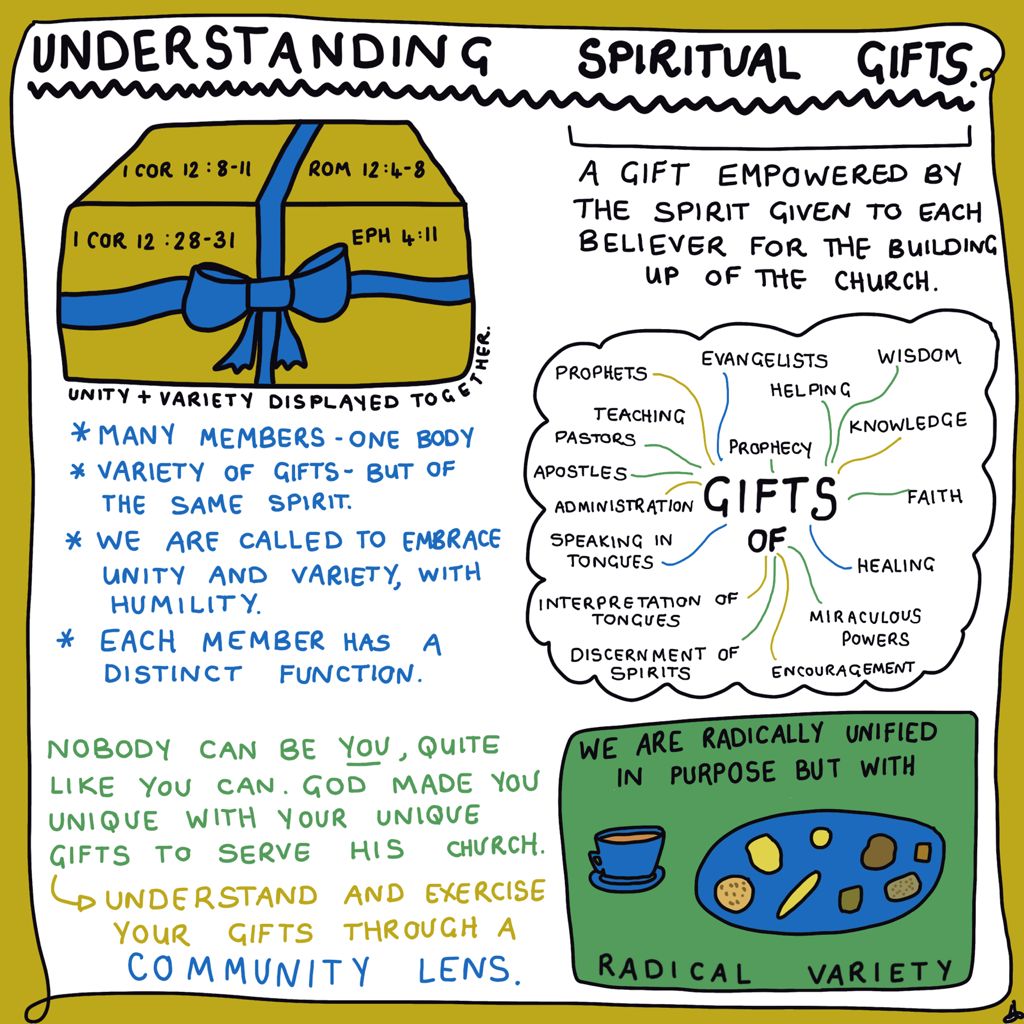 UNDERSTANDING SPIRITUAL GIFTS.
1 COR 12:8-11
ROM 12:4-8
1 COR 12:28-31
EPH 4:11
UNITY + VARIETY DISPLAYED TOGETHER.
A GIFT EMPOWERED BY
THE SPIRIT GIVEN TO EACH
BELIEVER FOR THE BUILDING
UP OF THE CHURCH.
* MANY MEMBERS - ONE BODY
* VARIETY OF GIFTS - BUT OF
THE SAME SPIRIT.
* WE ARE CALLED TO EMBRACE
UNITY AND VARIETY, WITH
HUMILITY.
* EACH MEMBER HAS A
DISTINCT FUNCTION.
GIFTS
OF
PROPHETS
EVANGELISTS
WISDOM
HELPING
TEACHING
KNOWLEDGE
PASTORS
PROPHECY
APOSTLES
FAITH
ADMINISTRATION
SPEAKING IN
TONGUES
HEALING
INTERPRETATION OF
TONGUES
MIRACULOUS
POWERS
DISCERNMENT OF
SPIRITS
ENCOURAGEMENT
NOBODY CAN BE YOU, QUITE
LIKE YOU CAN. GOD MADE YOU
UNIQUE WITH YOUR UNIQUE
GIFTS TO SERVE HIS CHURCH.
UNDERSTAND AND EXERCISE
YOUR GIFTS THROUGH A
COMMUNITY LENS.
WE ARE RADICALLY UNIFIED
IN PURPOSE BUT WITH
RADICAL VARIETY